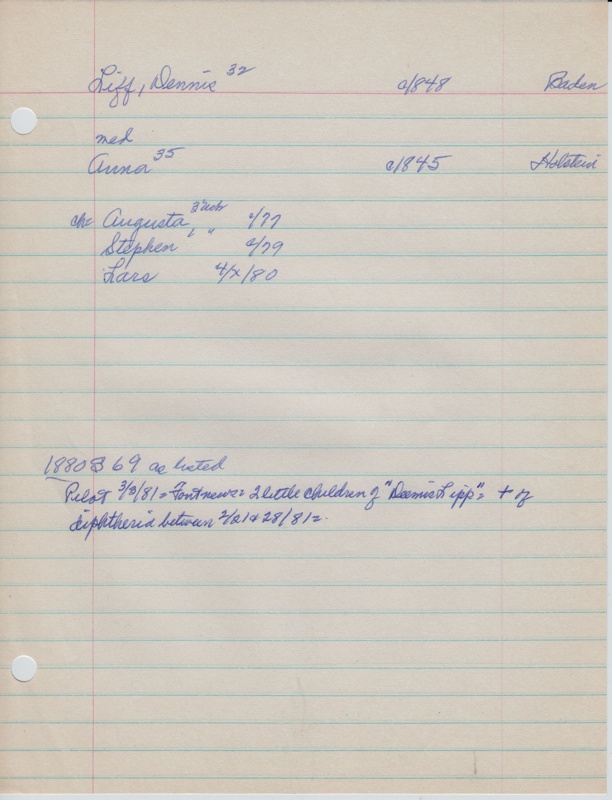 Liff, Dennis 32 c/848 Baden
med
Anna 35 c/845 Holstein
ch: Augusta, c/77
Stephen " c/79
Lars 4/x/80
1880 B 69 as listed
Pilot 3/3/81 = Font news = 2 little children of "Dennis Lipp" = + of
diphtheria between 2/21 & 28/81 =